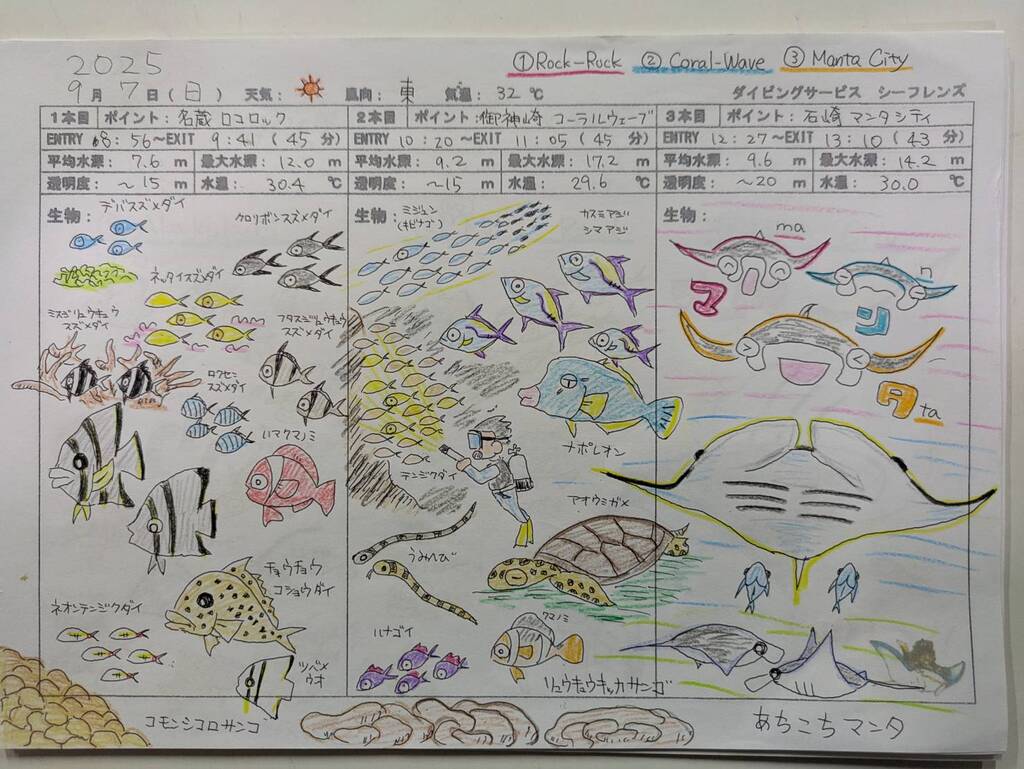 ①Rock-Rock ② Coral-Wave ③ Manta City
2025
9月7日(日) 天気: 風向: 東 気温: 32 ℃ ダイビングサービス シーフレンズ
1本目 ポイント: 名蔵 ロコロック
ENTRY 8:56~EXIT 9:41 (45 分)
平均水深: 7.6 m 最大水深: 12.0 m
透明度: ~15 m 水温: 30.4 ℃
2本目 ポイント: 御神崎 コーラルウェーブ
ENTRY 10:20~EXIT 11:05 (45 分)
平均水深: 9.2 m 最大水深: 17.2 m
透明度: ~15 m 水温: 29.6 ℃
3本目 ポイント: 石崎 マンタシティ
ENTRY 12:27~EXIT 13:10 (43 分)
平均水深: 9.6 m 最大水深: 14.2 m
透明度: ~20 m 水温: 30.0 ℃
生物:
デバスズメダイ
クロリボンスズメダイ
ネッタイスズメダイ
ミスジリュウキュウ
スズメダイ
フタスジリュウキュウ
スズメダイ
ロクセン
スズメダイ
ハマクマノミ
チョウチョウ
コショウダイ
ネオンテンジクダイ
ツバメ
ウオ
コモンシコロサンゴ
生物:
ミジュン
(キビナゴ)
カスミアジ
シマアジ
テンジクダイ
ナポレオン
アオウミガメ
うみへび
ハナゴイ
クマノミ
リュウキュウキッカサンゴ
生物:
ma
マ
ン
タ
ta
あちこちマンタ